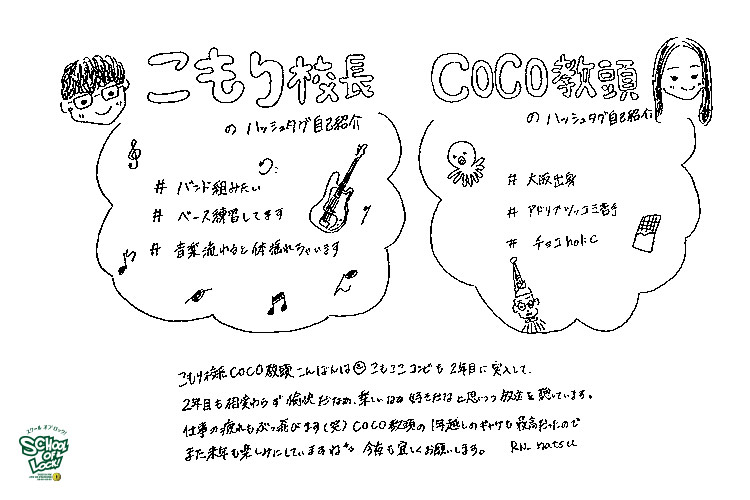 こもり校長
のハッシュタグ自己紹介
# バンド組みたい
# ベース練習してます
# 音楽流れると体揺れちゃいます
COCO教頭
のハッシュタグ自己紹介
# 大阪出身
# アドリブツッコミ苦手
# チョコholic
こもり校長COCO教頭こんばんは こもコココンビも2年目に突入して、
2年目も相変わらず愉快だなぁ、楽しいなぁ好きだなぁと思いつつ放送を聴いています。
仕事の疲れもぶっ飛びます(笑)COCO教頭の1年越しのギャグも最高だったので
また来年も楽しみにしていますね 今夜も宜しくお願いします。 RN. natsu
スクールオブロック!
SCHOOL OF LOCK!